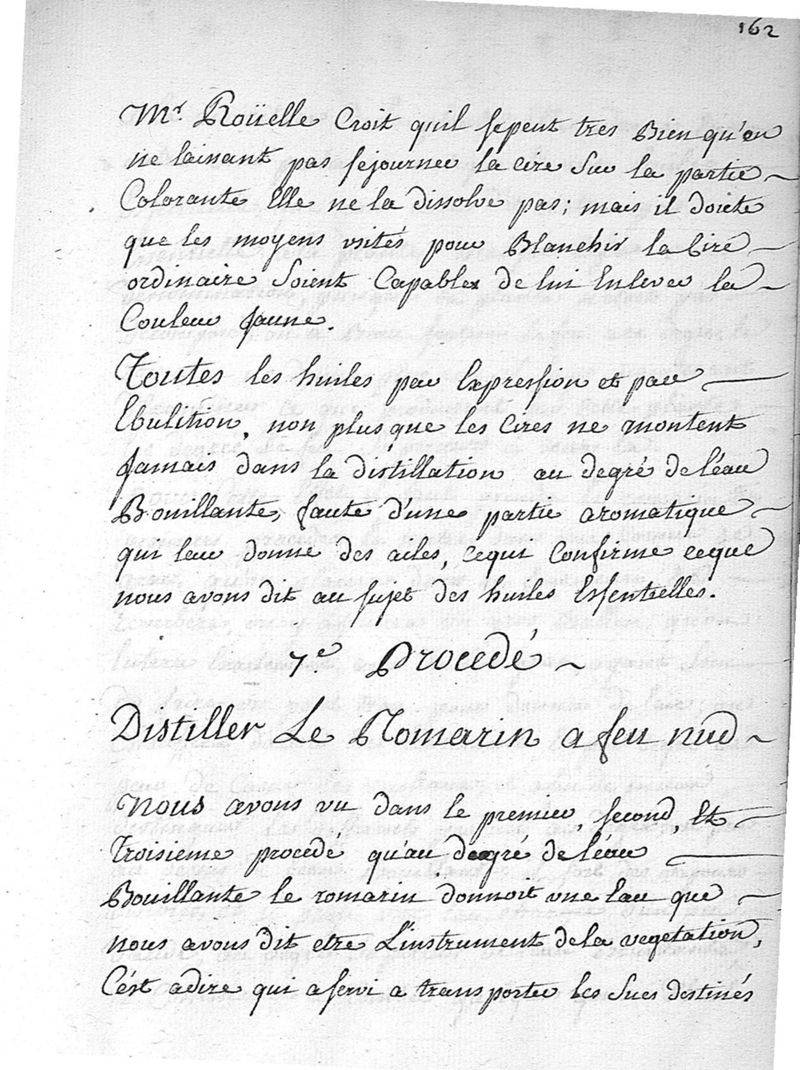 162
Mr. Roüelle Croit quil se peut tres Bien qu'en
ne laissant pas sejourner la cire Sur la partie
Colorante Elle ne la dissolve pas; mais il doute
que les moyens usités pour Blanchir la Cire
ordinaire Soient Capables de lui Enlever la
Couleur Jaune.
Toutes les huiles par Expression et par
Ebulition, non plus que les Cires ne montent
Jamais dans la distillation au degré de l'éau
Bouillante, faute d'une partie aromatique
qui leur donne des ailes, cequi Confirme ceque
nous avons dit au sujet des huiles Essentielles.
7e Procedé
Distiller Le Romarin a feu nud
Nous avons vu dans le premier, second, Et
Troisieme procedé qu'au degré de l'eau
Bouillante le romarin donnoit une Eau que
nous avons dit etre L'instrument de la vegetation,
C'ést adire qui a servi a transporter les Sucs destinés